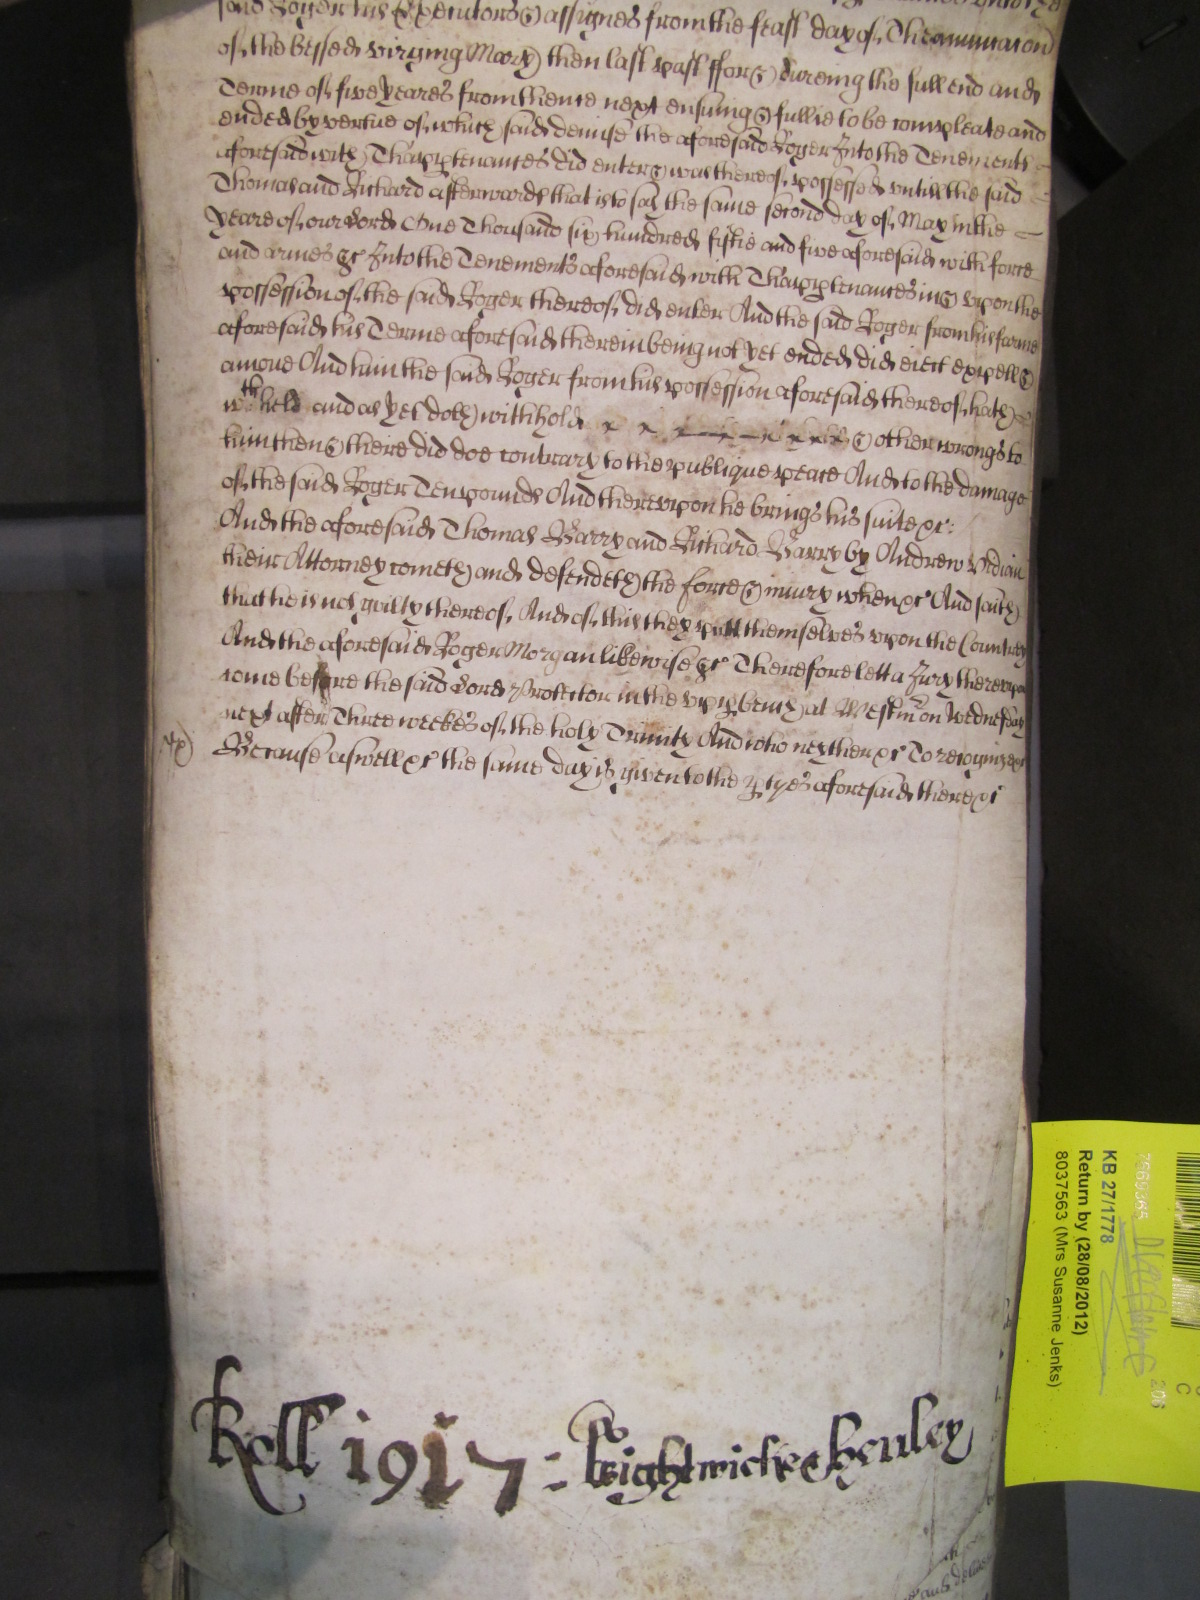 said Roger his Executors & assignes from the feast day of Thanunciacion
of the blessed virging Mary then last past ffor & dureing the full end and
Terme of five yeares from thence next ensuing & fullie to be compleate and
ended by vertue of which said demise the aforesaid Roger Into the Tenements
aforesaid with Thapptenances did enter & was thereof possessed untill the said
Thomas and Richard afterwards that is to say the same second day of May in the
yeare of our Lord One Thousand six hundred fiftie and five aforesaid with force
and armes &c Into the Tenements aforesaid with Thapptenances in & upon the
possession of the said Roger thereof did enter And the said Roger from his farme
aforesaid his Terme aforesaid therein being not yet ended did eiect expell &
amove And him the said Roger from his possession aforesaid thereof hath
wthheld and as yet doth withhold & other wrongs to
him then & there did doe contrary to the publique peace And to the damage
of the said Roger Ten pounds And thereupon he brings his suite &c:
And the aforesaid Thomas Barry and Richard Barry by Andrew Vidian
their Attorney cometh and defendeth the force & iniury when &c And saith
that he is not guilty thereof And of this they putt themselves upon the Countrey
And the aforesaid Roger Morgan likewise &c Therefore lett a Jury thereupon
come before the said Lord Protector in the upp bench at Westmr on Wednesday
next after Three weekes of the holy Trinity And who neyther &c To recognize &c
Because aswell &c the same day is given to the ptyes aforesaid there &c
Roll 1917: Brightwick & henley
7569365
KB 27/1778
Return by (28/08/2012)
8037563 (Mrs Susanne Jenks)
206
C